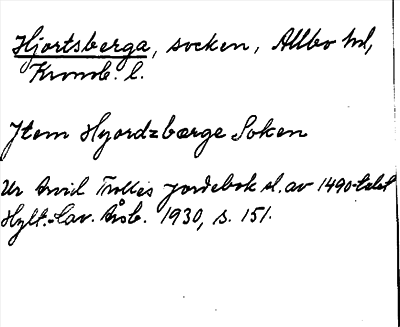 Hjortsberga, socken, Allbo hd,
Kronob. l.
Item Hyordzbærge Soken
Ur Arvid Trolles jordebok sl. av 1490-talet
Hylt.-Cav. årsb. 1930, s. 151.